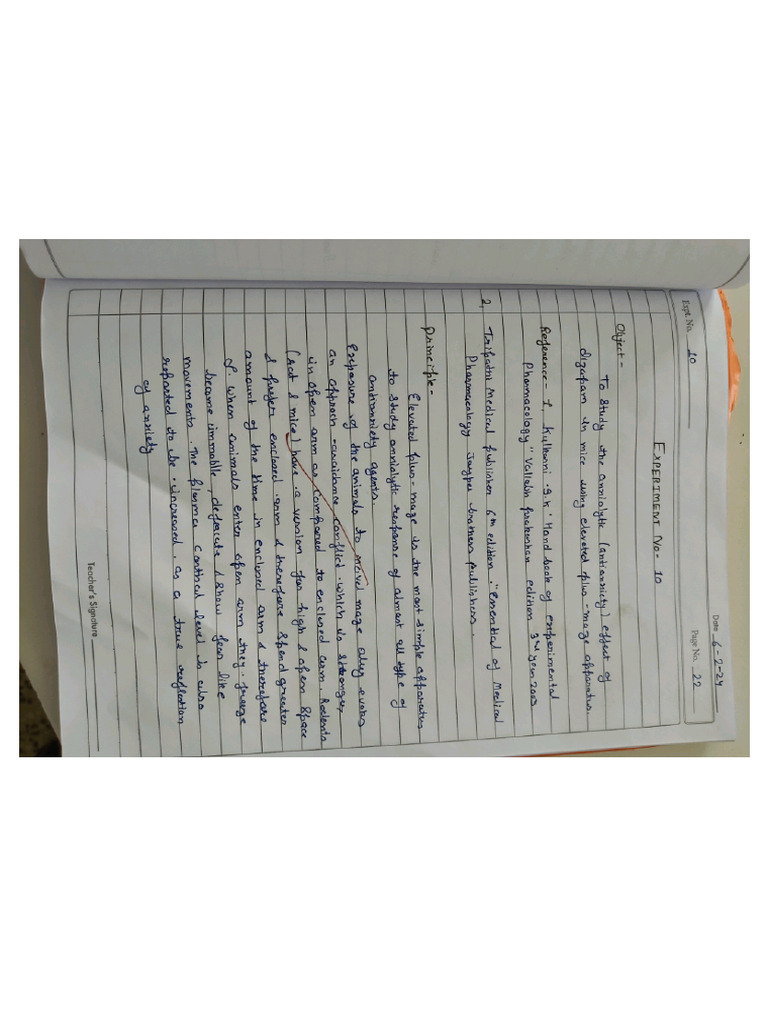 Date 6-2-24
Expt. No. 10
Page No. 22
EXPERIMENT No- 10
Object -
To study the anxiolytic (antianxiety) effect of
digepam in mice using elevated plus-maze apparatus.
Reference- 1, Kulkarni .S.K' Hand book of experimental
Pharmacology" Vallabh prakashan edition 3rd year 2003
2, Tripathi Medical publisher 6th edition, "essential of Medical
Pharmacology Jaypee brothers publishers.
Principle-
Elevated plus-maze is the most simple apparatus
to study anxiolytic response of almost all type of
antianxiety agents.
Exposure of the animals to maze alley evokes
an approach-avoidance conflict. which is stronger,
in open arm as compared to enclosed arm. Rodents
(rat & mice) have a version for high & open space
& prefer enclosed arm & therefore spend greater
amount of the time in enclosed arm & therefore
. When animals enter open arm they, freeze
become immobile, defecate & show fear like
movements. The plasma cortical level is also
reported to be .increased. as a true reflection
of anxiety
Teacher's Signature